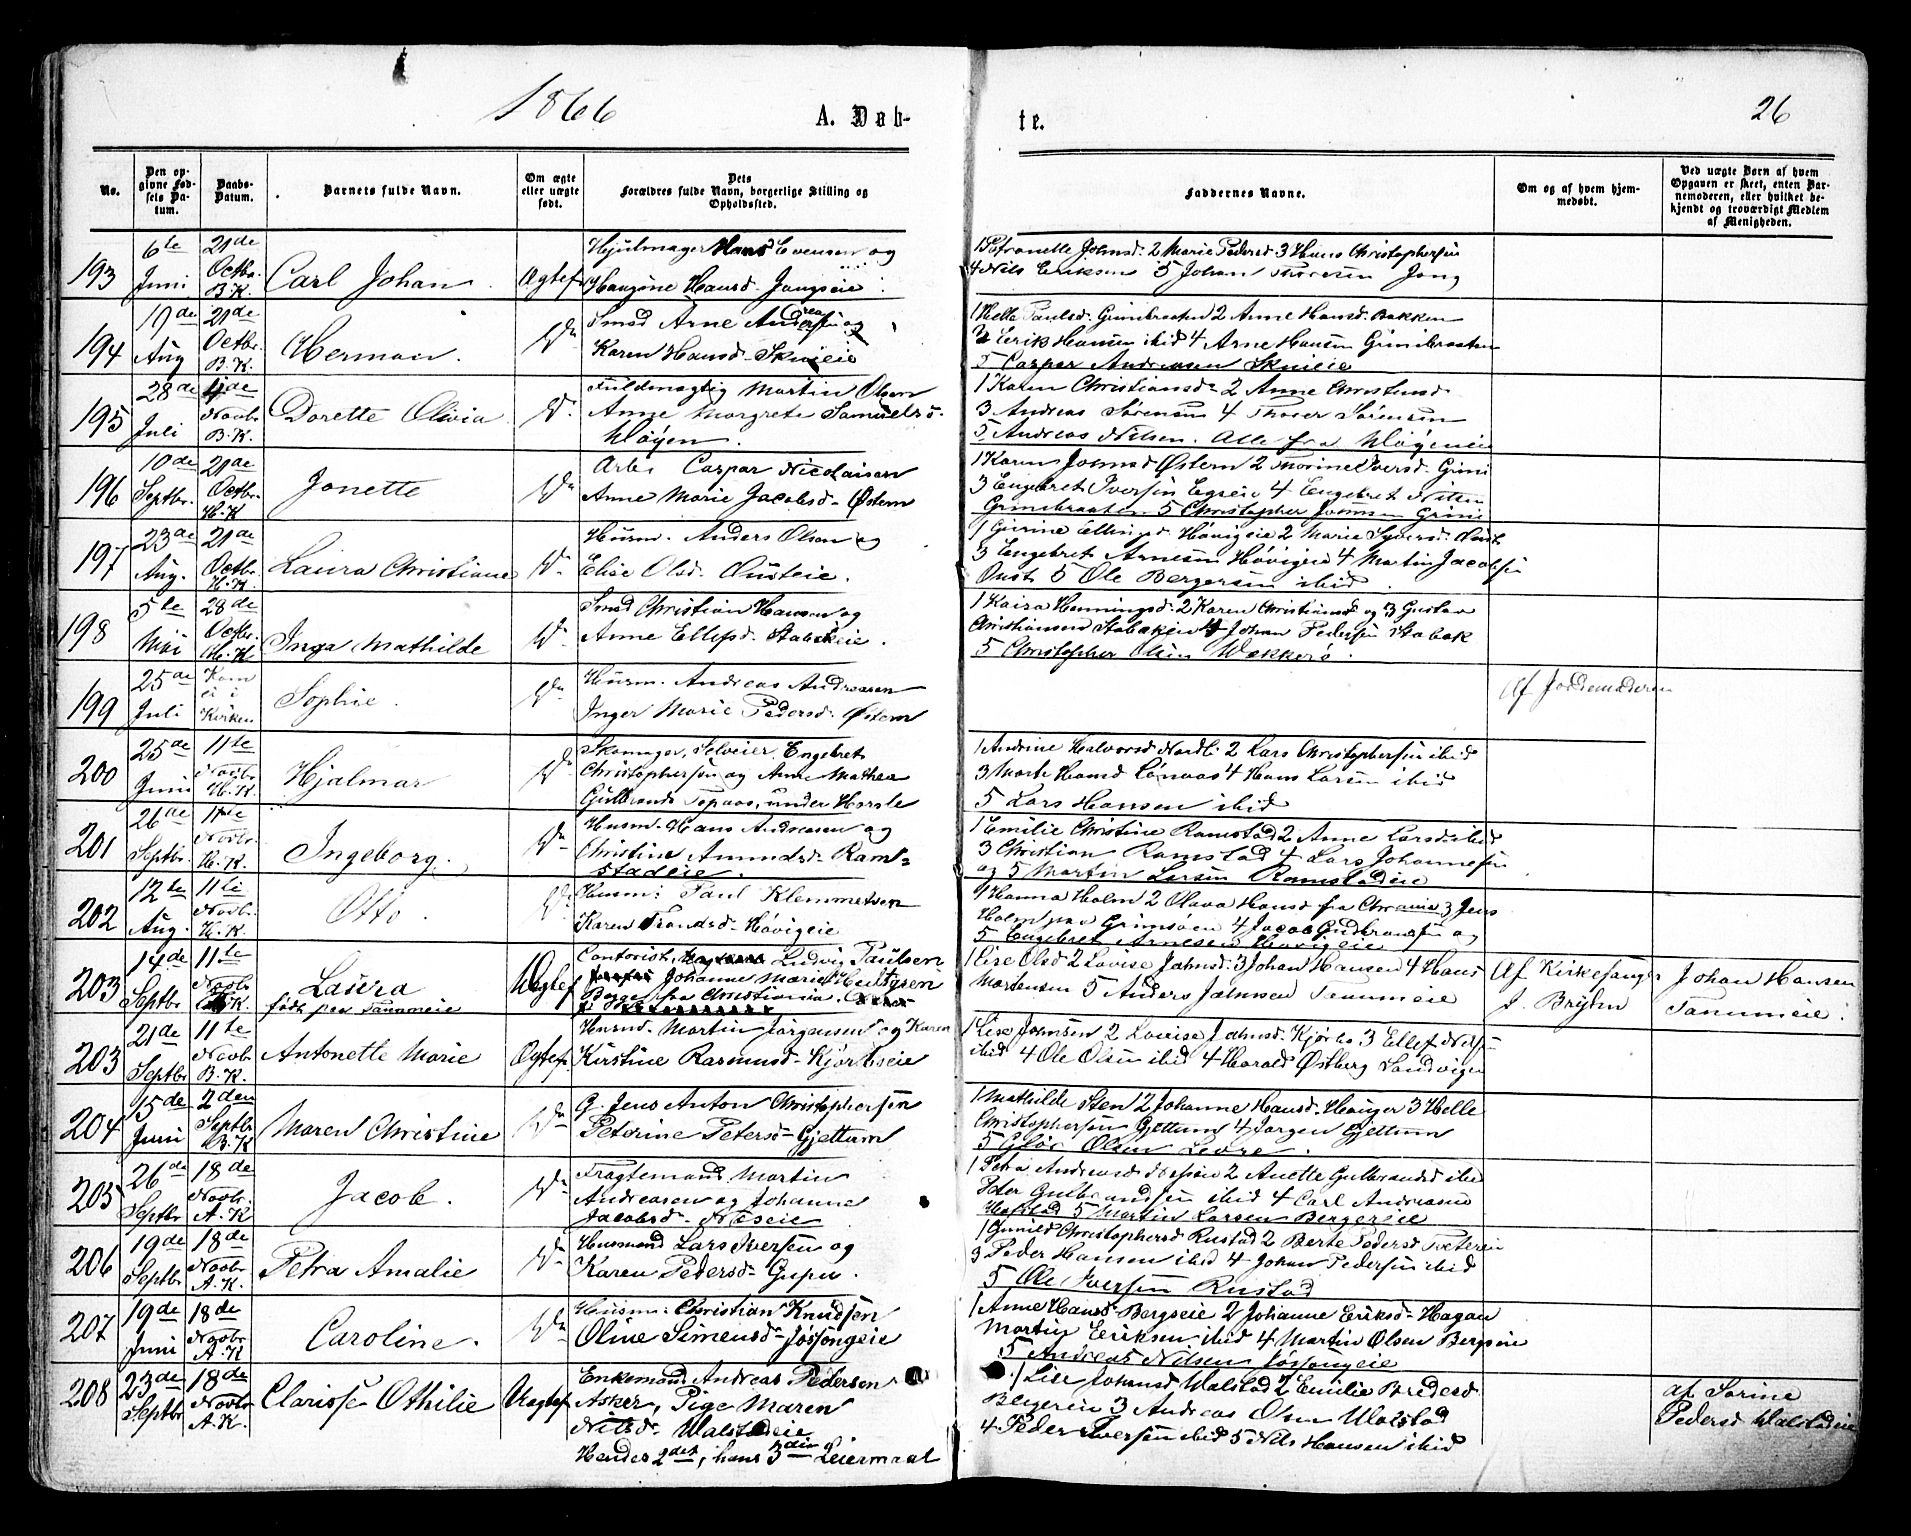 1866
A. Døb-
te.
26
No.
Den op-
givne Fød-
sels Da-
tum.
Daabs-
Datum.
Barnets fulde Navn.
Om ægte
eller uægte
født.
Dets
Forældres fulde Navn, borgerlige Stilling og
Opholdssted.
Faddernes Navne.
Om og af hvem hjem-
medøbt.
Ved uægte Børn af hvem
Opgaven er skeet, enten Bar-
nemoderen, eller hvilket be-
kjendt og troværdigt Medlem
af Menigheden.
193
6te
Juni
21de
Octbr.
B.K.
Carl Johan
Ægtef
Hjulmager Hans Evensen og
Hansd. Jongseie
1 Petronelle Johnsd. 2 Marie Pedersd 3 Hans Christophersen
4 Nils Eriksen 5 Johan Jong
194
19de
Aug
21de
Octbr.
B.K.
Herman.
Do
Smed Arne Andreasen og
Karen Hansd. Skuieie
1 Helle Paulsd. Grinibraaten 2 Anne Hansd. Bakken
3 Erik Hansen ibid 4 Arne Hansen Grinibraaten
5 Casper Andreasen Skuieie
195
28de
Juli
4de
Novbr
B.K.
Dorette Olivia
Do
Fuldmægtig Martin Olsen
Anne Margrete Samuelsd.
Wøyen.
1 Karen Christiansd. 2 Anne Christensd.
3 Andreas Sørensen 4 Sørensen
5 Andreas Nilsen. Alle fra Wøyeneie
196
10de
Septbr.
21de
Octbr.
H.K
Jonette
Do
Arb. Caspar Nicolaisen
Anne Marie Jacobsd. Østern
1 Karen Johnsd Østern 2 Thorine Iversd. Grini
3 Engebret Iversen Egseie 4 Engebret Nilsen
Grinibraaten 5 Christopher Johnsen Grini
197
23de
Aug.
21de
Octbr.
H.K
Laura Christiane
Do
Husm. Anders Olsen og
Elise Olsd. Onsteie.
1 Gurine Ellingsd. Høvigeie 2 Marie Syversd. Onst
3 Engebret Arnesen Høvigeie 4 Martin Jacobsen
Onst 5 Ole Bergersen ibid.
198
5te
Mai
28de
Octbr.
H.K
Inga Mathilde
Do
Smed Christian Hansen og
Anne Ellefsd. Stabekeie.
1 Kaisa Henningsd. 2 Karen Christiansd og 3 Gustav
Christiansen Stabekeie 4 Johan Pedersen Stabæk
5 Christopher Olsen Wækkerø.
199
25de
Juli
Kom
ei i
Kirken
Sophie.
Do
Husm. Andreas Andreasen
Inger Marie Pedersd. Østern
Af Jordemoderen
200
25de
Juni
11te
Novbr
H.K
Hjalmar
Do
Skomager, Selveier Engebret
Christophersen og Anne Mathea
Gulbrands Topaas, under Horsle
1 Andrine Halvorsd Nordli 2 Lars Christophersen ibid
3 Marte Hansd Lønaas 4 Hans Larsen ibid
5 Lars Hansen ibid
201
26de
Septbr.
11te
Novbr.
H.K.
Ingeborg.
Do
Husm. Hans Andreasen og
Christine Amundsd. Ram-
stadeie.
1 Emilie Christine Ramstad 2 Anne Larsd ibid
3 Christian Ramstad 4 Lars Johannesen
og 5 Martin Larsen Ramstadeie
202
12te
Aug.
11te
Novbr.
H.K.
Otto.
Do
Husm: Paul Klemmetsen
Karen Trondsd. Høvigeie
1 Hanna Holm 2 Olava Hansd fra Chrania 3 Jens
Holm paa Grimsøen 4 Jacob Gudbrandsen og
5 Engebret Arnesen Høvigeie
203
14de
Septbr
11te
Novbr
K.
Laura
født paa Tanumeie
Uægtef
Contorist, Ludvig Paulsen
Johanne Marie
fra Christiania.
1 Lise Olsd 2 Lovise Jahnsd. 3 Johan Hansen 4 Hans
Mortensen 5 Anders Jahnsen Tanumeie
Af Kirkesanger
J. Bryhn
Johan Hansen
Tanumeie.
203
21de
Septbr
11te
Novbr.
B.K.
Antonette Marie
Ægtef
Husmd. Martin Jørgensen og Karen
Kirstine Rasmusd. Kjørboeie
1 Lise Johnsen 2 Lovise Jahnsd. Kjørbo 3 Ellef Nilsen
ibid 4 Ole Olsen ibid 4 Harald Østberg Sandvigen
204
15de
Juni
2den
Septbr
B.K
Maren Christine
Do
G. Jens Anton Christophersen
Peterine Petersd. Gjettum
1 Mathilde Sten 2 Johanne Hansd. Hauger 3 Helle
Christophersen Gjettum 4 Jørgen Gjettum
5 Olsen Levre.
205
26de
Septbr
18de
Novbr.
A.K
Jacob.
Do
Fragtemand Martin
Andreasen og Johanne
Jacobsd. Næseie
1 Petra Andreasd 2 Anette Gulbrandsd ibid
Peder Gulbrandsen ibid 4 Carl Andreasen
Hofstad 5 Martin Larsen Bergereie
206
19de
Septbr
18de
Novbr.
A.K.
Petra Amalie
Do
Husmand Lars Iversen og
Karen Pedersd.
1 Gunild Christophersd Rustad 2 Berte Pedersd
3 Peder Hansen ibid 4 Johan Pedersen ibid
5 Ole Iversen Rustad
207
19de
Juni
18de
Novbr.
A.K
Caroline.
Do
Husm. Christian Knudsen
Oline Simensd. Jøssongeie
1 Anne Hansd. Bergseie 2 Johanne Eriksd. Hagan
Martin Eriksen ibid 4 Martin Olsen Bergseie
5 Andreas Nilsen Jøssongeie
208
23de
Septbr
18de
Novbr
A.K.
Clarisse Othilie
Uægtef
Enkemand Andreas Pedersen
Asker, Pige Maren
Nilsd. Walstadeie
Hendes 2det, hans 3die Leiermaal
1 Lise Johansd Walstad 2 Emilie Bredesd.
3 Andreas Olsen Walstad
4 Peder Iversen ibid 5 Nils Hansen ibid
af Sorine
Pedersd Walstadeie